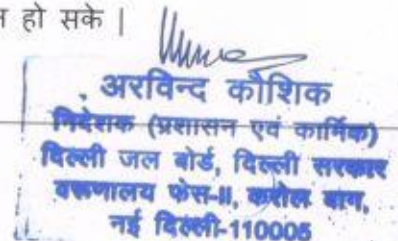 हो सके |
अरविन्द कौशिक
निदेशक (प्रशासन एवं कार्मिक)
दिल्ली जल बोर्ड, दिल्ली सरकार
वरूणालय फेस-II, करोल बाग,
नई दिल्ली-110005